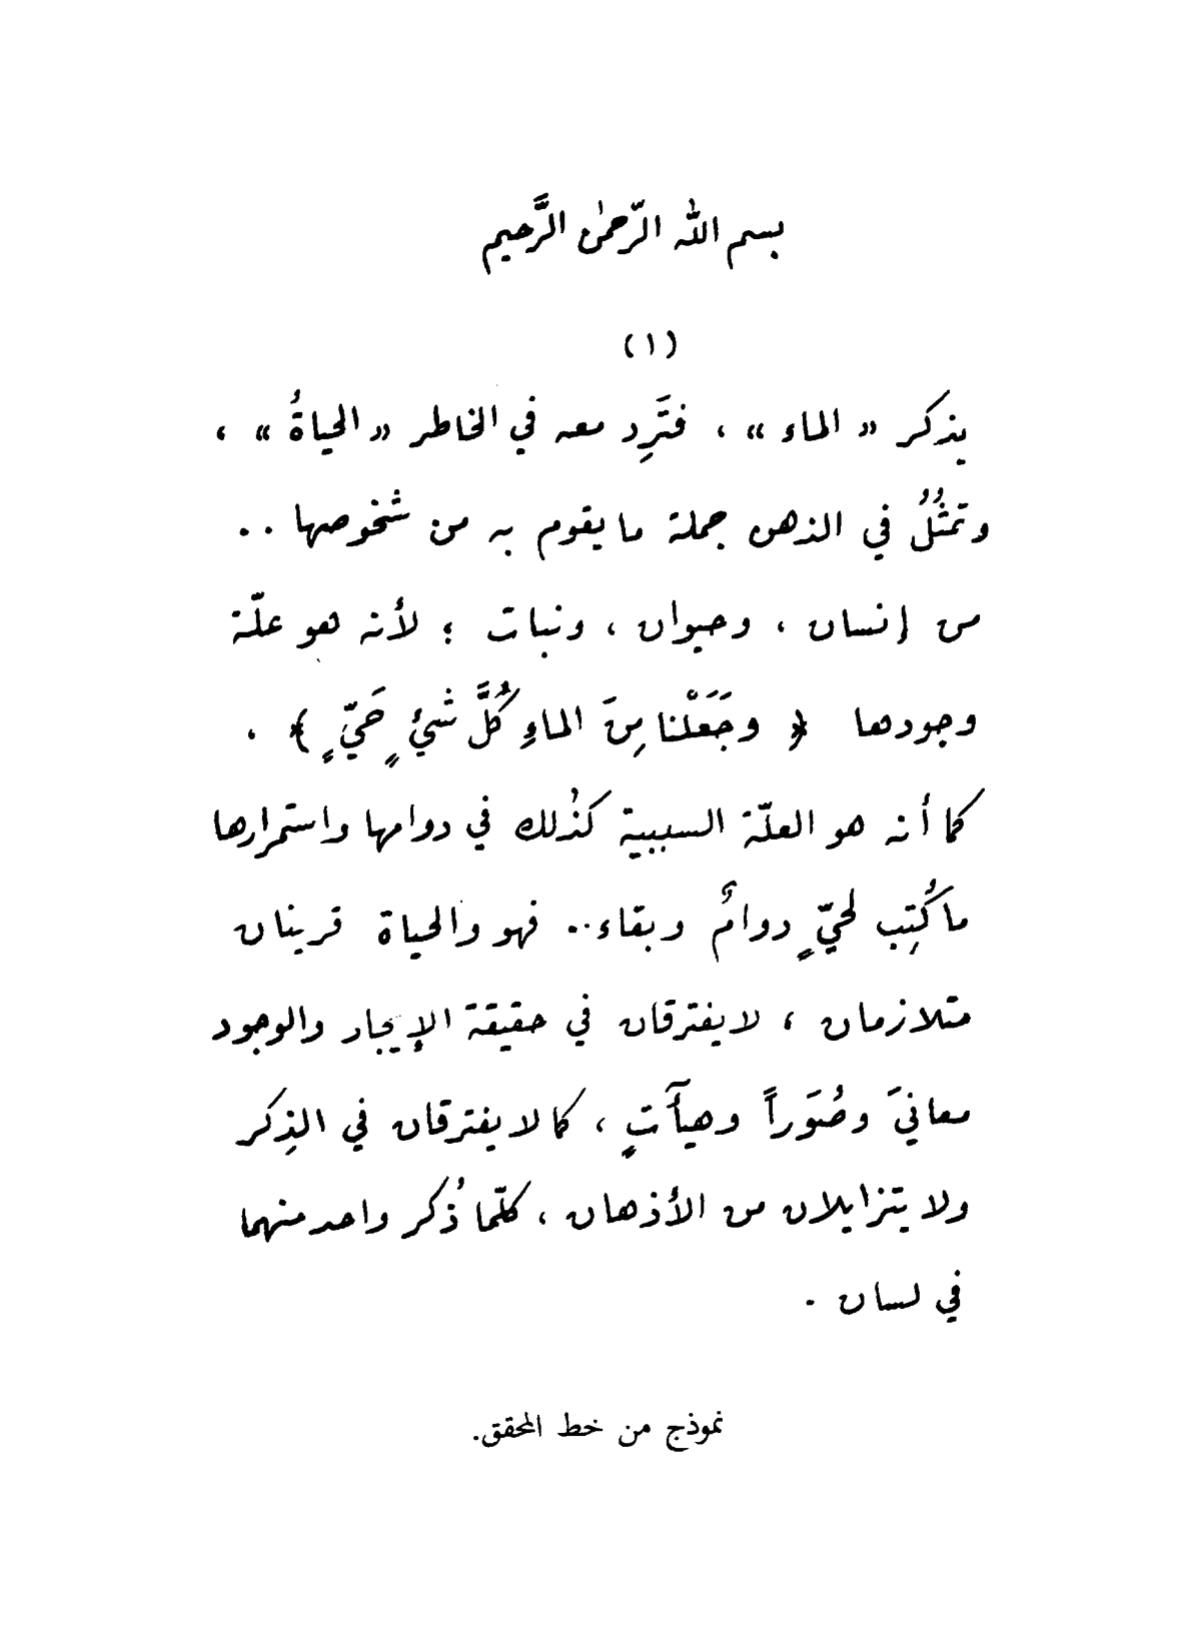 بسم الله الرّحمٰن الرَّحيم
(١)
يذكر «الماء» ، فتَرِد معه في الخاطر «الحياةُ» ،
وتمثُلُ في الذهن جملة ما يقوم به من شخوصها ..
من إنسان ، وحيوان ، ونبات ؛ لأنه هو علّة
وجودها ﴿ وجَعَلْنا مِنَ الماءِ كُلَّ شيْءٍ حَيٍّ ﴾ .
كما أنه هو العلّة السببية كذٰلك في دوامها واستمرارها
ما كُتِب لحيّ ٍ دوامٌ وبقاء .. فهو والحياة قرينان
متلازمان ، لا يفترقان في حقيقة الإيجاد والوجود
معانيَ وصُوَراً وهيآتٍ ، كما لا يفترقان في الذِكر
ولا يتزايلان من الأذهان ، كلّما ذُكر واحد منهما
في لسان .
نموذج من خط المحقق.